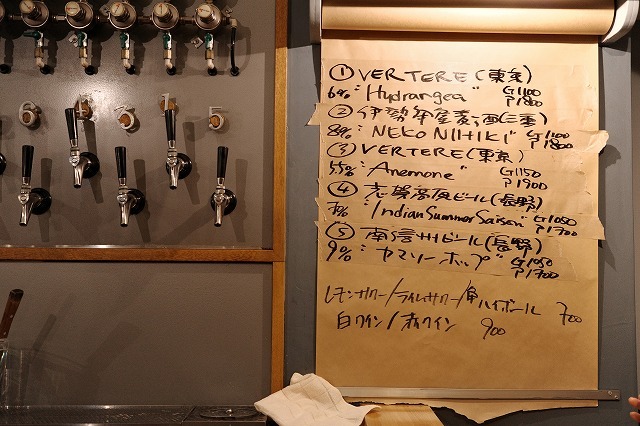 ① VERTERE (東京)
6% "Hydrangea" G1100
P1800
② 伊勢角屋麦酒 (三重)
8% "NEKO NIHIKI" G1100
P1800
③ VERTERE (東京)
5.5% "Anemone" G1150
P1900
④ 志賀高原ビール (長野)
7% "Indian Summer Saison" G1050
P1700
⑤ 南信州ビール (長野)
9% "ヤマソーホップ" G1050
P1700
レモンサワー/ライムサワー/角ハイボール 700
白ワイン/赤ワイン 900
6 1 3 1 5